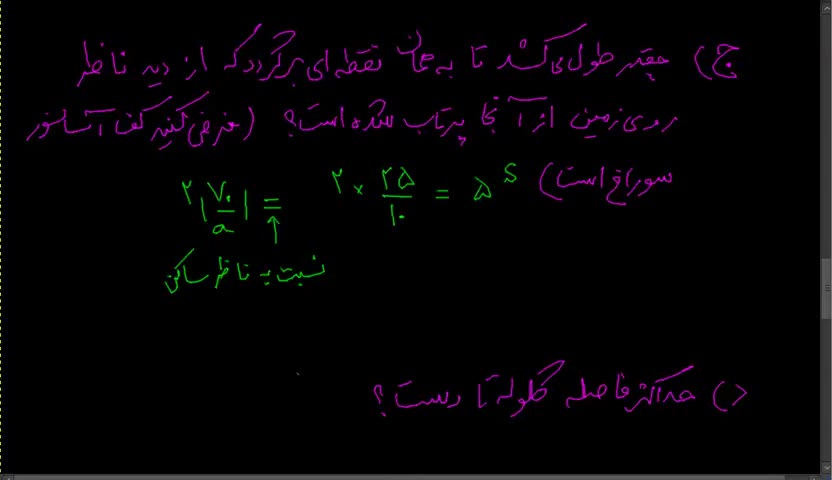 ج) چقدر طول می‌کشد تا به همان نقطه‌ای برگردد که از دید ناظر
روی زمین از آنجا پرتاب شده است؟ (فرض کنید کف آسانسور
سوراخ است)
۲|V۰/a| = ۲ × ۲۵/۱۰ = ۵ s
نسبت به ناظر ساکن
د) حداکثر فاصله گلوله تا دست؟